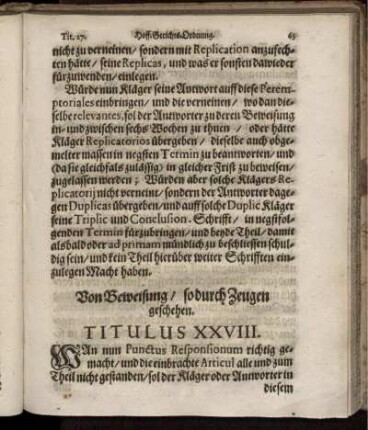 Tit. 27. Hoff-Gerichts-Ordnung. 65
nicht zu verneinen/ sondern mit Replication anzufech-
ten hätte/ seine Replicas, und was er sonsten dawieder
fürzuwenden/ einlegen.
Würde nun Kläger seine Antwort auff diese Perem-
ptoriales einbringen/ und die verneinen/ wo dan die-
selbe relevantes, sol der Antworter zu deren Beweisung
in- und zwischen sechs Wochen zu thuen/ oder hätte
Kläger Replicatorios übergeben/ dieselbe auch obge-
melter massen in negsten Termin zu beantworten/ und
(da sie gleichfals zulässig) in gleicher Frist zu beweisen/
zugelassen werden; Würden aber solche Klägers Re-
plicatorij nicht verneint/ sondern der Antworter dage-
gen Duplicas übergeben/ und auff solche Duplic Kläger
seine Triplic und Conclusion-Schrifft/ in negstfol-
genden Termin fürzubringen/ und beyde Theil/ damit
als bald oder ad primam mündlich zu beschliessen schul-
dig sein/ und kein Theil hierüber weiter Schrifften ein-
zulegen Macht haben.
Von Beweisung/ so durch Zeugen
geschehen.
TITULUS XXVIII.
WAn nun Punctus Responsionum richtig ge-
macht/ und die einbrachte Articul alle und zum
Theil nicht gestanden/ sol der Kläger oder Antworter in
diesem